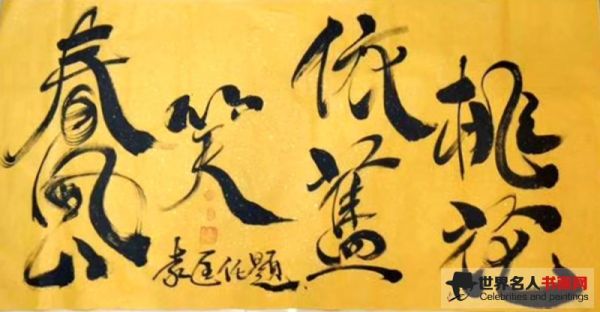 桃花
依舊
笑
春風
任題
世界名人书画网
Celebrities and paintings